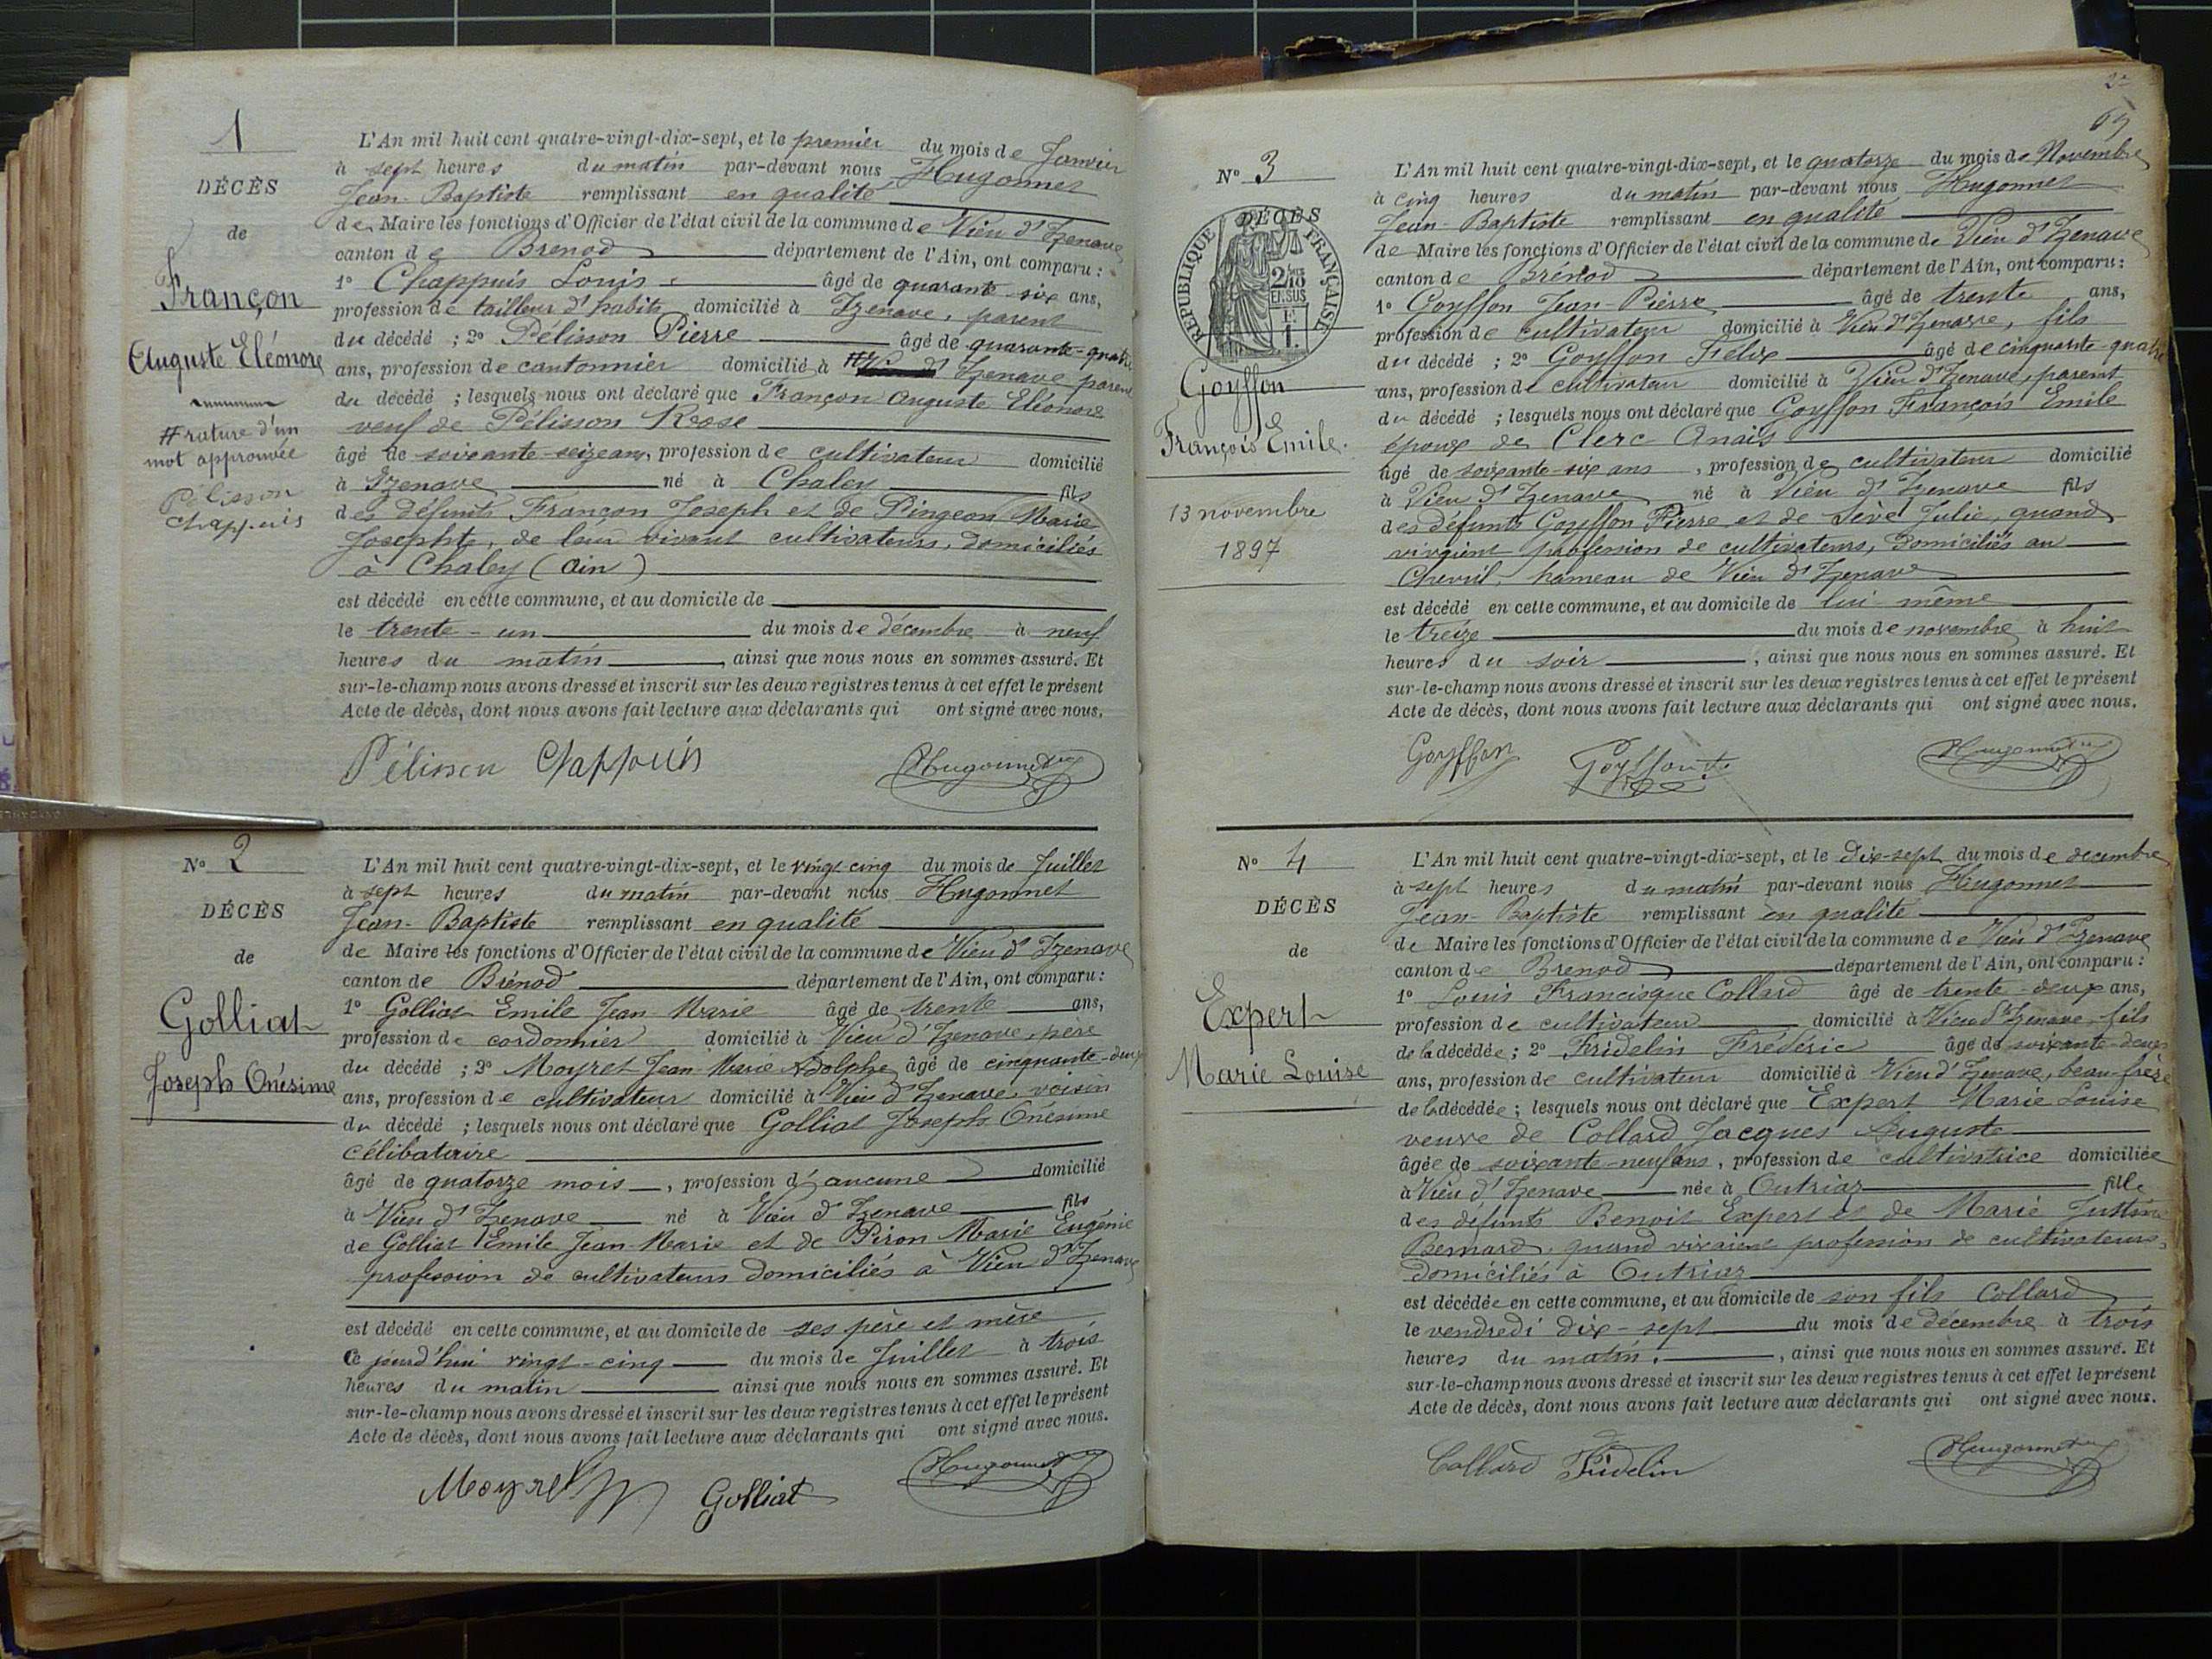 1
DÉCÈS
de
Françon
Auguste Eléonore
# rature d'un
mot approuvée
Pélisson
Chappuis
L'An mil huit cent quatre-vingt-dix-sept, et le premier du mois de Janvier
à sept heures du matin par-devant nous Hugonnet
Jean-Baptiste remplissant en qualité
de Maire les fonctions d'Officier de l'état civil de la commune de Vieu d'Izenave
canton de Brenod département de l'Ain, ont comparu :
1° Chappuis Louis âgé de quarante-six ans,
profession de tailleur d'habits domicilié à Izenave, parent
du décédé ; 2° Pélisson Pierre âgé de quarante-quatre
ans, profession de cantonnier domicilié à # Izenave parent
du décédé ; lesquels nous ont déclaré que Françon Auguste Eléonore
veuf de Pélisson Rose
âgé de soixante-seize ans, profession de cultivateur domicilié
à Izenave né à Chaley fils
des défunts Françon Joseph et de Pingeon Marie
Josephte, de leur vivant cultivateurs, domiciliés
à Chaley (Ain)
est décédé en cette commune, et au domicile de
le trente-un du mois de décembre à neuf
heures du matin, ainsi que nous nous en sommes assuré. Et
sur-le-champ nous avons dressé et inscrit sur les deux registres tenus à cet effet le présent
Acte de décès, dont nous avons fait lecture aux déclarants qui ont signé avec nous.
Pélisson Chappuis Hugonnet
N° 2
DÉCÈS
de
Golliat
Joseph Onésime
L'An mil huit cent quatre-vingt-dix-sept, et le vingt cinq du mois de Juillet
à sept heures du matin par-devant nous Hugonnet
Jean-Baptiste remplissant en qualité
de Maire les fonctions d'Officier de l'état civil de la commune de Vieu d'Izenave
canton de Brénod département de l'Ain, ont comparu :
1° Golliat Emile Jean Marie âgé de trente ans,
profession de cordonnier domicilié à Vieu d'Izenave, père
du décédé ; 2° Moyret Jean-Marie Adolphe âgé de cinquante-deux
ans, profession de cultivateur domicilié à Vieu d'Izenave, voisin
du décédé ; lesquels nous ont déclaré que Golliat Joseph Onésime
célibataire
âgé de quatorze mois, profession d'aucune domicilié
à Vieu d'Izenave né à Vieu d'Izenave fils
de Golliat Emile Jean-Marie et de Piron Marie Eugénie
profession de cultivateurs domiciliés à Vieu d'Izenave
est décédé en cette commune, et au domicile de ses père et mère
Ce jourd'hui vingt-cinq du mois de Juillet à trois
heures du matin ainsi que nous nous en sommes assuré. Et
sur-le-champ nous avons dressé et inscrit sur les deux registres tenus à cet effet le présent
Acte de décès, dont nous avons fait lecture aux déclarants qui ont signé avec nous.
Moyret Golliat Hugonnet
N° 3
DÉCÈS
RÉPUBLIQUE FRANÇAISE
2/10
EN SUS
1
Goyffon
François Emile.
13 novembre
1897
L'An mil huit cent quatre-vingt-dix-sept, et le quatorze du mois de Novembre
à cinq heures du matin par-devant nous Hugonnet
Jean-Baptiste remplissant en qualité
de Maire les fonctions d'Officier de l'état civil de la commune de Vieu d'Izenave
canton de Brénod département de l'Ain, ont comparu :
1° Goyffon Jean-Pierre âgé de trente ans,
profession de cultivateur domicilié à Vieu d'Izenave, fils
du décédé ; 2° Goyffon Félix âgé de cinquante-quatre
ans, profession de cultivateur domicilié à Vieu d'Izenave, parent
du décédé ; lesquels nous ont déclaré que Goyffon François Emile
époux de Clerc Anaïs
âgé de soixante-six ans, profession de cultivateur domicilié
à Vieu d'Izenave né à Vieu d'Izenave fils
des défunts Goyffon Pierre et de Sève Julie, quand
vivaient profession de cultivateurs, domiciliés au
Chevril, hameau de Vieu d'Izenave
est décédé en cette commune, et au domicile de lui même
le treize du mois de novembre à huit
heures du soir, ainsi que nous nous en sommes assuré. Et
sur-le-champ nous avons dressé et inscrit sur les deux registres tenus à cet effet le présent
Acte de décès, dont nous avons fait lecture aux déclarants qui ont signé avec nous.
Goyffon Goyffon Hugonnet
N° 4
DÉCÈS
de
Expert
Marie Louise
L'An mil huit cent quatre-vingt-dix-sept, et le dix-sept du mois de decembre
à sept heures du matin par-devant nous Hugonnet
Jean-Baptiste remplissant en qualité
de Maire les fonctions d'Officier de l'état civil de la commune de Vieu d'Izenave
canton de Brenod département de l'Ain, ont comparu :
1° Louis Francisque Collard âgé de trente-deux ans,
profession de cultivateur domicilié à Vieu d'Izenave, fils
de la décédée ; 2° Fridelin Frédéric âgé de soixante-deux
ans, profession de cultivateur domicilié à Vieu d'Izenave, beau-frère
de la décédée ; lesquels nous ont déclaré que Expert Marie Louise
veuve de Collard Jacques Auguste
âgée de soixante-neuf ans, profession de cultivatrice domiciliée
à Vieu d'Izenave née à Outriaz fille
des défunts Benoit Expert et de Marie Justine
Bernard, quand vivaient profession de cultivateurs,
domiciliés à Outriaz
est décédée en cette commune, et au domicile de son fils Collard
le vendredi dix-sept du mois de décembre à trois
heures du matin, ainsi que nous nous en sommes assuré. Et
sur-le-champ nous avons dressé et inscrit sur les deux registres tenus à cet effet le présent
Acte de décès, dont nous avons fait lecture aux déclarants qui ont signé avec nous.
Collard Fridelin Hugonnet